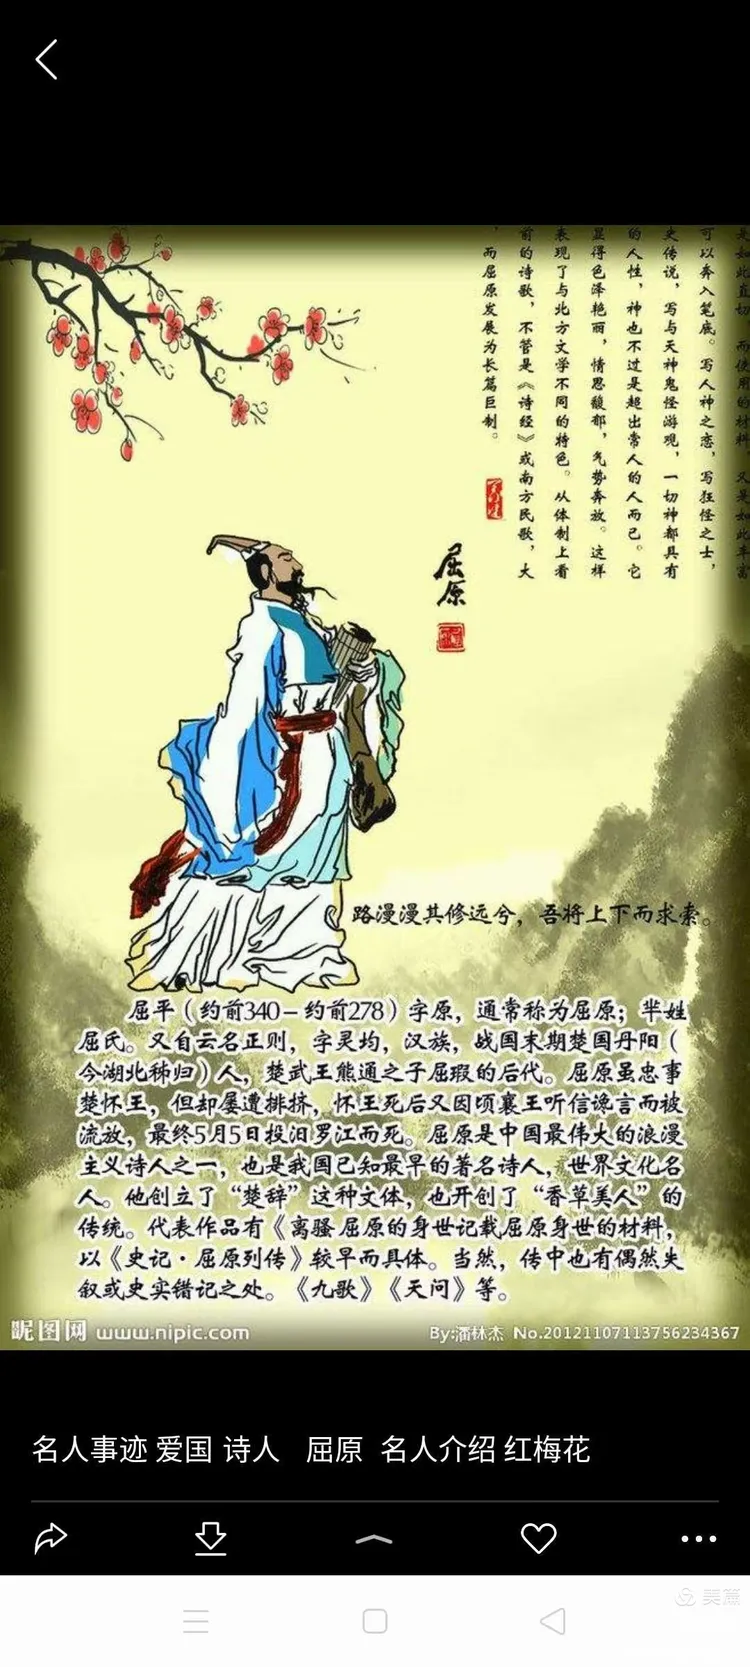 是如此直切，而使用的材料，又是如此丰富
可以奔入笔底。写人神之恋，写狂怪之士，
史传说，写与天神鬼怪游观，一切神都具有
的人性，神也不过是超出常人的人而已。它
显得色泽艳丽，情思馥郁，气势奔放。这样
表现了与北方文学不同的特色。从体制上看
前的诗歌，不管是《诗经》或南方民歌，大
，而屈原发展为长篇巨制。
屈原
路漫漫其修远兮，吾将上下而求索。
屈平（约前340-约前278）字原，通常称为屈原；芈姓
屈氏。又自云名正则，字灵均，汉族，战国末期楚国丹阳（
今湖北秭归）人，楚武王熊通之子屈瑕的后代。屈原虽忠事
楚怀王，但却屡遭排挤，怀王死后又因顷襄王听信谗言而被
流放，最终5月5日投汨罗江而死。屈原是中国最伟大的浪漫
主义诗人之一，也是我国已知最早的著名诗人，世界文化名
人。他创立了“楚辞”这种文体，也开创了“香草美人”的
传统。代表作品有《离骚屈原的身世记载屈原身世的材料，
以《史记·屈原列传》较早而具体。当然，传中也有偶然失
叙或史实错记之处。《九歌》《天问》等。
昵图网 www.nipic.com
By:潘林杰 No.20121107113756234367
名人事迹 爱国 诗人 屈原 名人介绍 红梅花
美篇